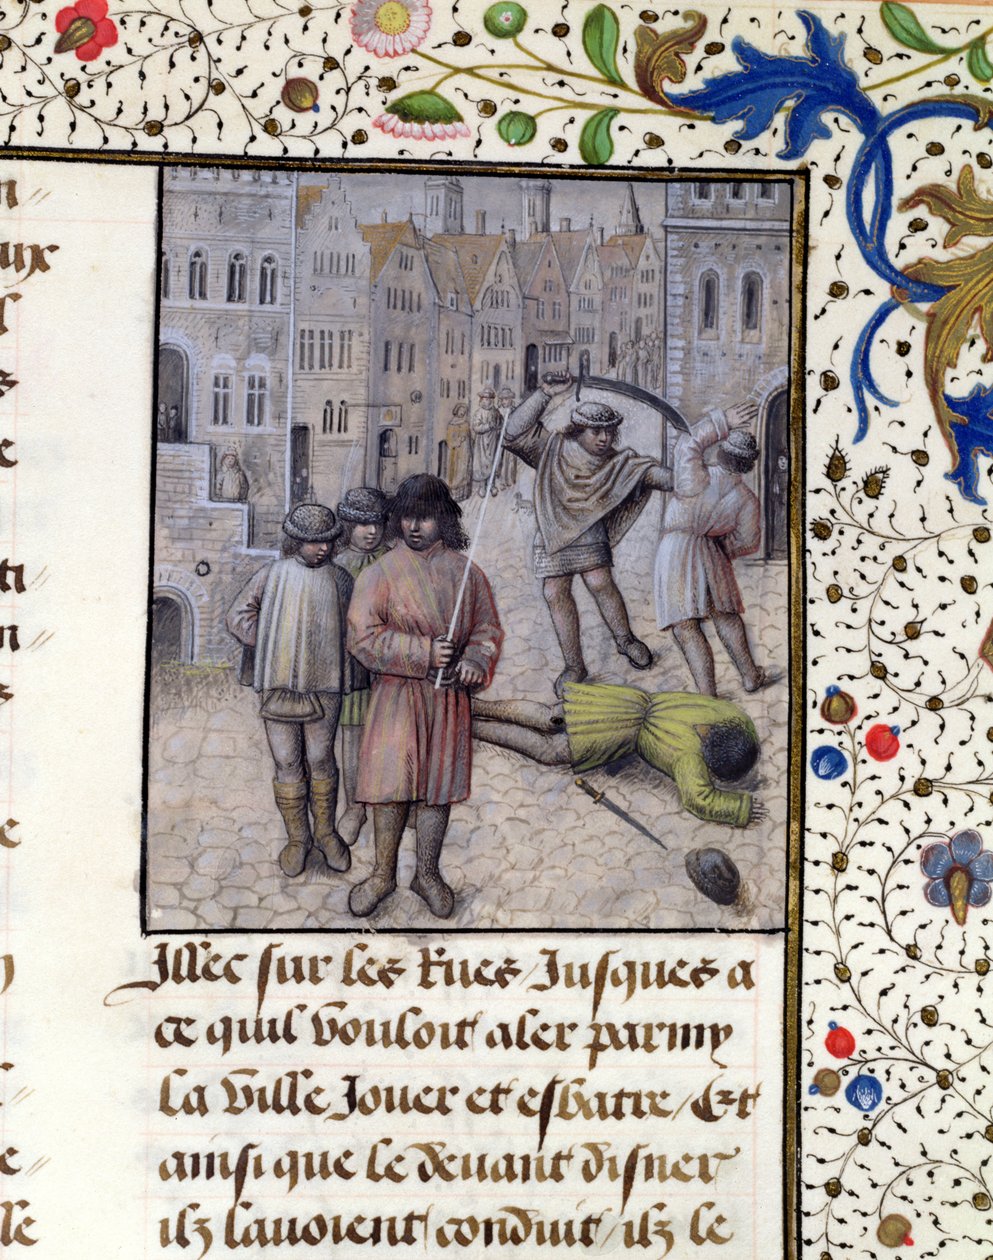 Illec sur les Rues / Jusques a
ce quil vouloit aler parmy
la ville Jouer et esbatre / Et
ainsi que le devant disner
ilz lavoient conduit / ilz le